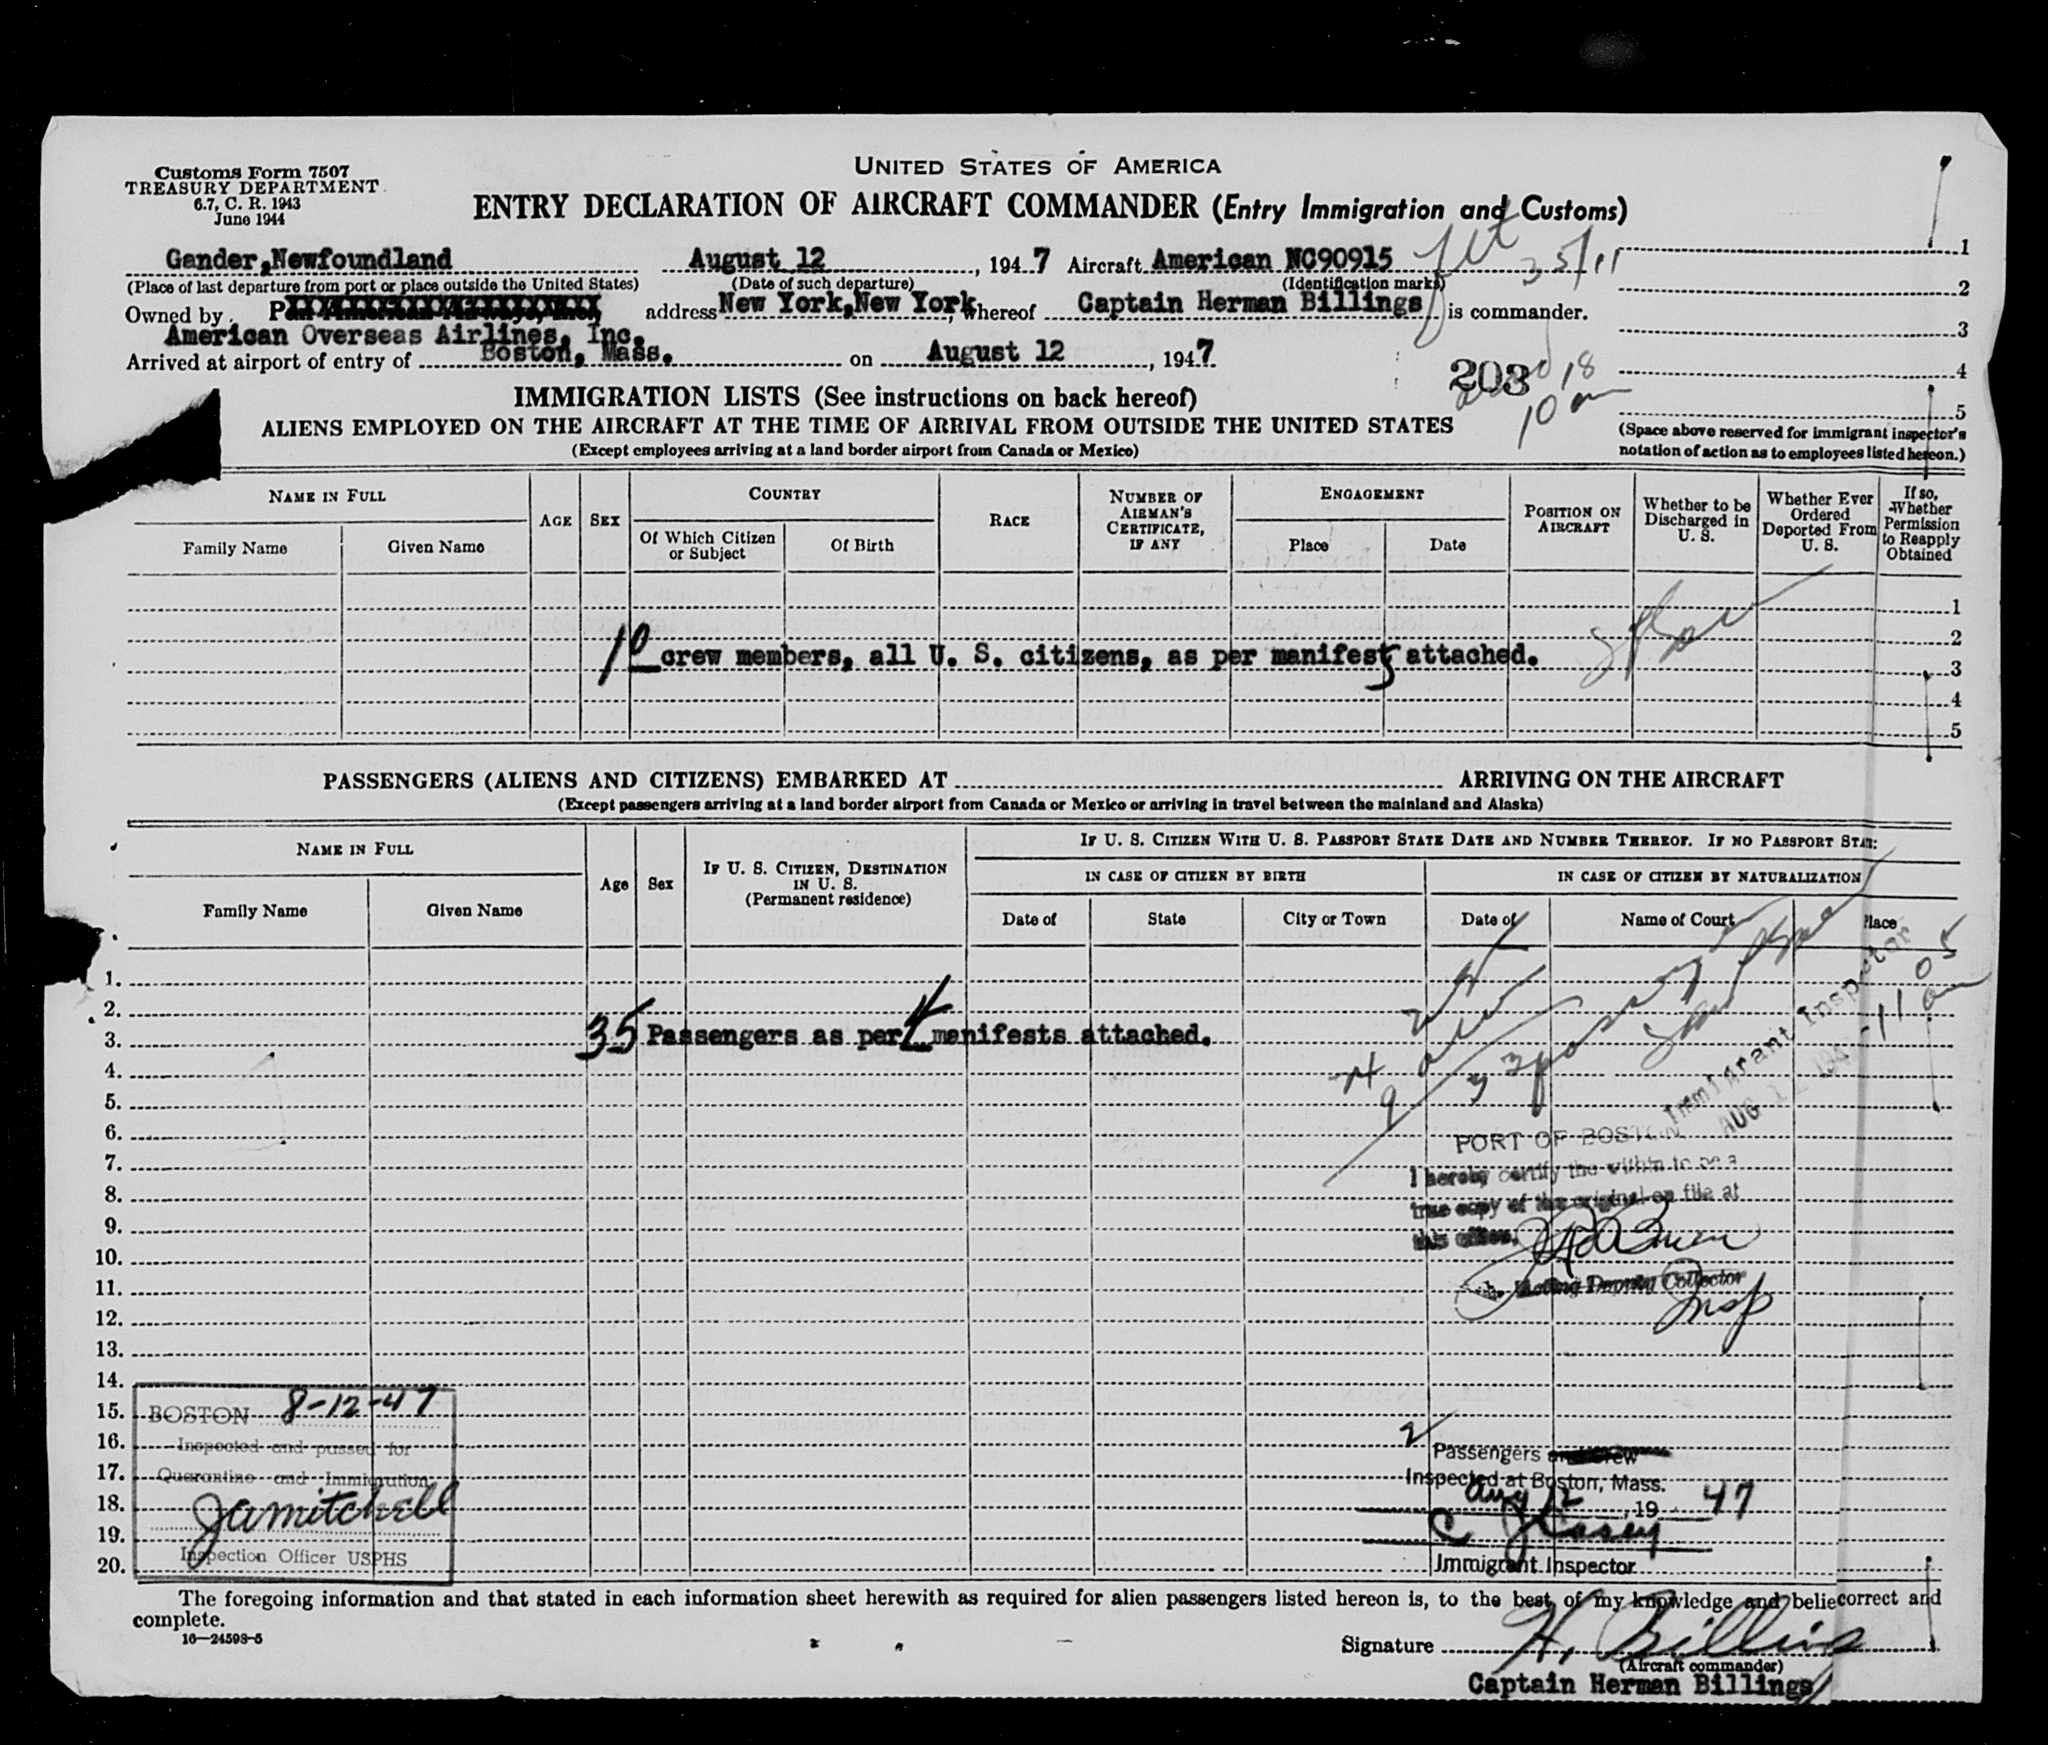 Customs Form 7507
TREASURY DEPARTMENT
6.7, C. R. 1943
June 1944
UNITED STATES OF AMERICA
ENTRY DECLARATION OF AIRCRAFT COMMANDER (Entry Immigration and Customs)
Gander,Newfoundland August 12, 1947 Aircraft American NC90915 35/11
(Place of last departure from port or place outside the United States) (Date of such departure) (Identification marks)
Owned by address New York,New York, whereof Captain Herman Billings is commander.
American Overseas Airlines, Inc.
Arrived at airport of entry of Boston, Mass. on August 12, 1947
1
2
3
4
5
203
18
10 am
(Space above reserved for immigrant inspector's notation of action as to employees listed hereon.)
IMMIGRATION LISTS (See instructions on back hereof)
ALIENS EMPLOYED ON THE AIRCRAFT AT THE TIME OF ARRIVAL FROM OUTSIDE THE UNITED STATES
(Except employees arriving at a land border airport from Canada or Mexico)
NAME IN FULL
Family Name Given Name
AGE SEX
COUNTRY
Of Which Citizen or Subject Of Birth
RACE
NUMBER OF AIRMAN'S CERTIFICATE, IF ANY
ENGAGEMENT
Place Date
POSITION ON AIRCRAFT
Whether to be Discharged in U. S.
Whether Ever Ordered Deported From U. S.
If so, Whether Permission to Reapply Obtained
1
2
10 crew members, all U. S. citizens, as per manifest attached.
3
4
5
PASSENGERS (ALIENS AND CITIZENS) EMBARKED AT ARRIVING ON THE AIRCRAFT
(Except passengers arriving at a land border airport from Canada or Mexico or arriving in travel between the mainland and Alaska)
NAME IN FULL
Family Name Given Name
Age Sex
IF U. S. CITIZEN, DESTINATION IN U. S.
(Permanent residence)
IF U. S. CITIZEN WITH U. S. PASSPORT STATE DATE AND NUMBER THEREOF. IF NO PASSPORT STATE:
IN CASE OF CITIZEN BY BIRTH
Date of State City or Town
IN CASE OF CITIZEN BY NATURALIZATION
Date of Name of Court Place
1.
2.
3. 35 Passengers as per manifests attached.
4.
5.
6.
7.
8.
9.
10.
11.
12.
13.
14.
15.
16.
17.
18.
19.
20.
33 passengers
Immigrant Inspector
AUG 12
11 05 am
PORT OF BOSTON
I hereby certify the within to be a
true copy of the original on file at
this office.
Acting Deputy Collector
Insp
BOSTON 8-12-47
Inspected and passed for
Quarantine and Immigration
JAMitchell
Inspection Officer USPHS
2 Passengers and Crew
Inspected at Boston, Mass.
Aug 12, 19 47
C J Casey
Immigrant Inspector
The foregoing information and that stated in each information sheet herewith as required for alien passengers listed hereon is, to the best of my knowledge and belie correct and
complete.
16—24598-5
Signature H. Billings
(Aircraft commander)
Captain Herman Billings